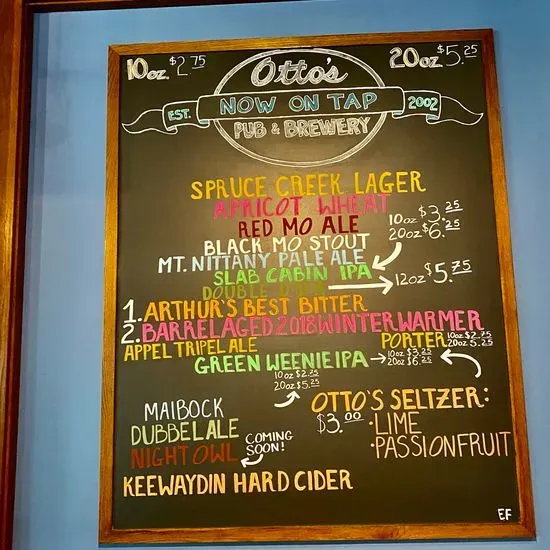 10oz. $2.75
20oz $5.25
Otto's
EST. NOW ON TAP 2002
PUB & BREWERY
SPRUCE CREEK LAGER
APRICOT WHEAT
RED MO ALE
10oz $3.25
20oz $6.25
BLACK MO STOUT
MT. NITTANY PALE ALE
SLAB CABIN IPA
DOUBLE
12oz $5.75
1. ARTHUR'S BEST BITTER
2. BARREL AGED 2018 WINTER WARMER
APPEL TRIPEL ALE
PORTER 10oz $2.75
20oz 5.25
GREEN WEENIE IPA
10oz $3.25
20oz $6.25
10oz $2.75
20oz $5.25
OTTO'S SELTZER:
$3.00
• LIME
• PASSIONFRUIT
MAIBOCK
DUBBEL ALE
NIGHT OWL
COMING
SOON!
KEEWAYDIN HARD CIDER
EF